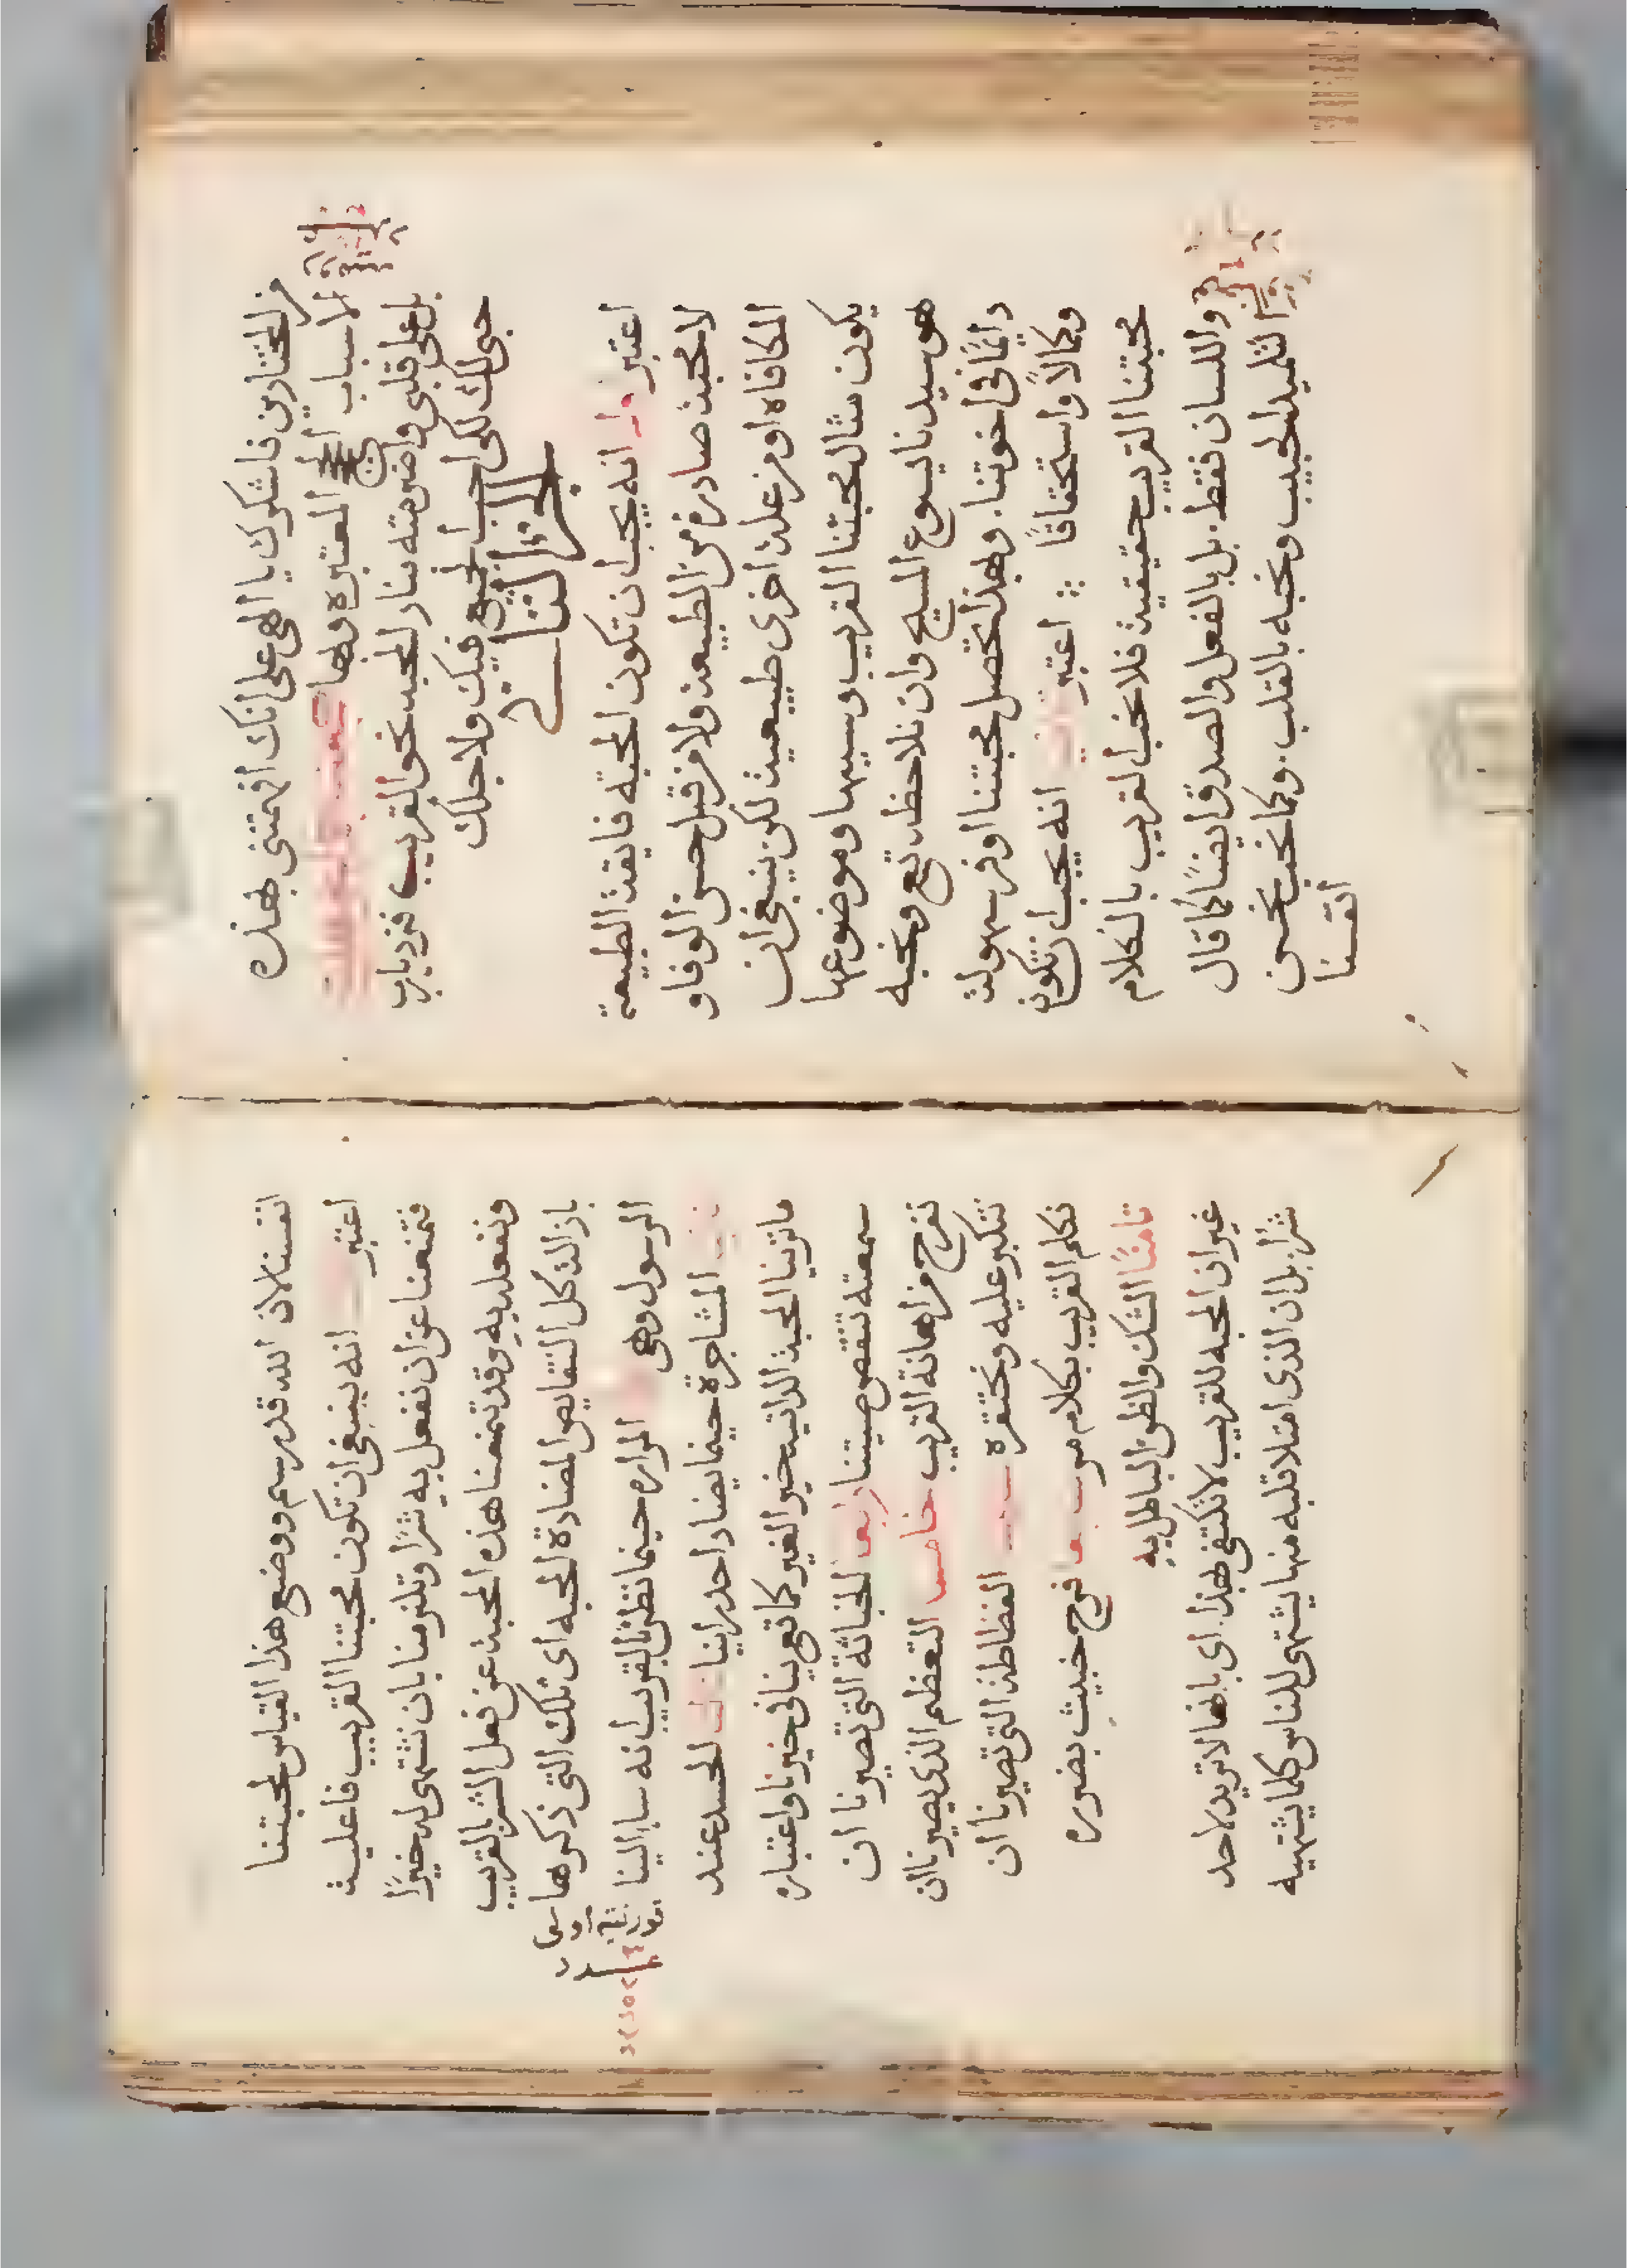 من المختارين فاشكرك يا الهي على انك افهمتني بهذه
الاسباب المعتبره ولها
بل على قلبي واضرمته بنار المحبه نحو القريب فزد يارب
حبي لك لكي احب الجميع فيك ولاجلك
الجزء الثاني
اعتبر اولا انه يجب ان تكون المحبة فايقة الطبيعة
لا محبة صادره من الطبيعة ولا من قبل حسن الوفا و
المكافاه او من علة اخرى طبيعية لكن ينبغي ان
يكون مثال محبتنا القريب وسببها وموضوعها
هو سيدنا يسوع المسيح وان نلاحظه تع ونحبه
دايمًا في اخوتنا. وبهذا تحصل محبتنا اوفر سهولة
وكمالًا واستحقاقًا ⁘ اعتبر انه يجب ان تكون
محبتنا القريب حقيقية فلا نحب القريب بالكلام
واللسان فقط. بل بالفعل والصدق ايضًا كما قال
التلميذ الحبيب ونحبه بالقلب. وكما نحب نحن
انفسنا
انفسنا لان الله قد رسم ووضع هذا القياس لمحبتنا
اعتبر انه ينبغي ان تكون محبتنا القريب فاعلية
فتمنعنا عن ان نفعل به شرًا وتلزمنا بان نشتهي له خيرًا
ونفعله به وقد تمنعنا هذه المحبة عن فعل الشر بالقريب
بازالة كل النقايص المضادة المحبه اي تلك التي ذكرها
الرسول وهي المراره حينما نظن بالقريب انه سا الينا
المشاجرة حينما يضاد احد راينا الحسد عند
ماترينا المحبة الذاتية خير الغير كما تع ينا في خيرنا واعتباره
سمعته تنقص صيتنا رابعا الخباثة التي تصيرنا ان
نفرح من اهانة القريب خامسا التعظم الذي يصيرنا ان
نتكبر عليه ونحتقره الفظاظة التي تصيرنا ان
نكلم القريب بكلام مر فرح خبيث بضرره
ثامنًا الشك والظن الباطل به
غير ان المحبه للقريب لا تكتفي بهذا. اي بانها لا تريد لاحد
شرًا بل ان الذي امتلا قلبه منها يشتهي للناس كلما يشتهيه